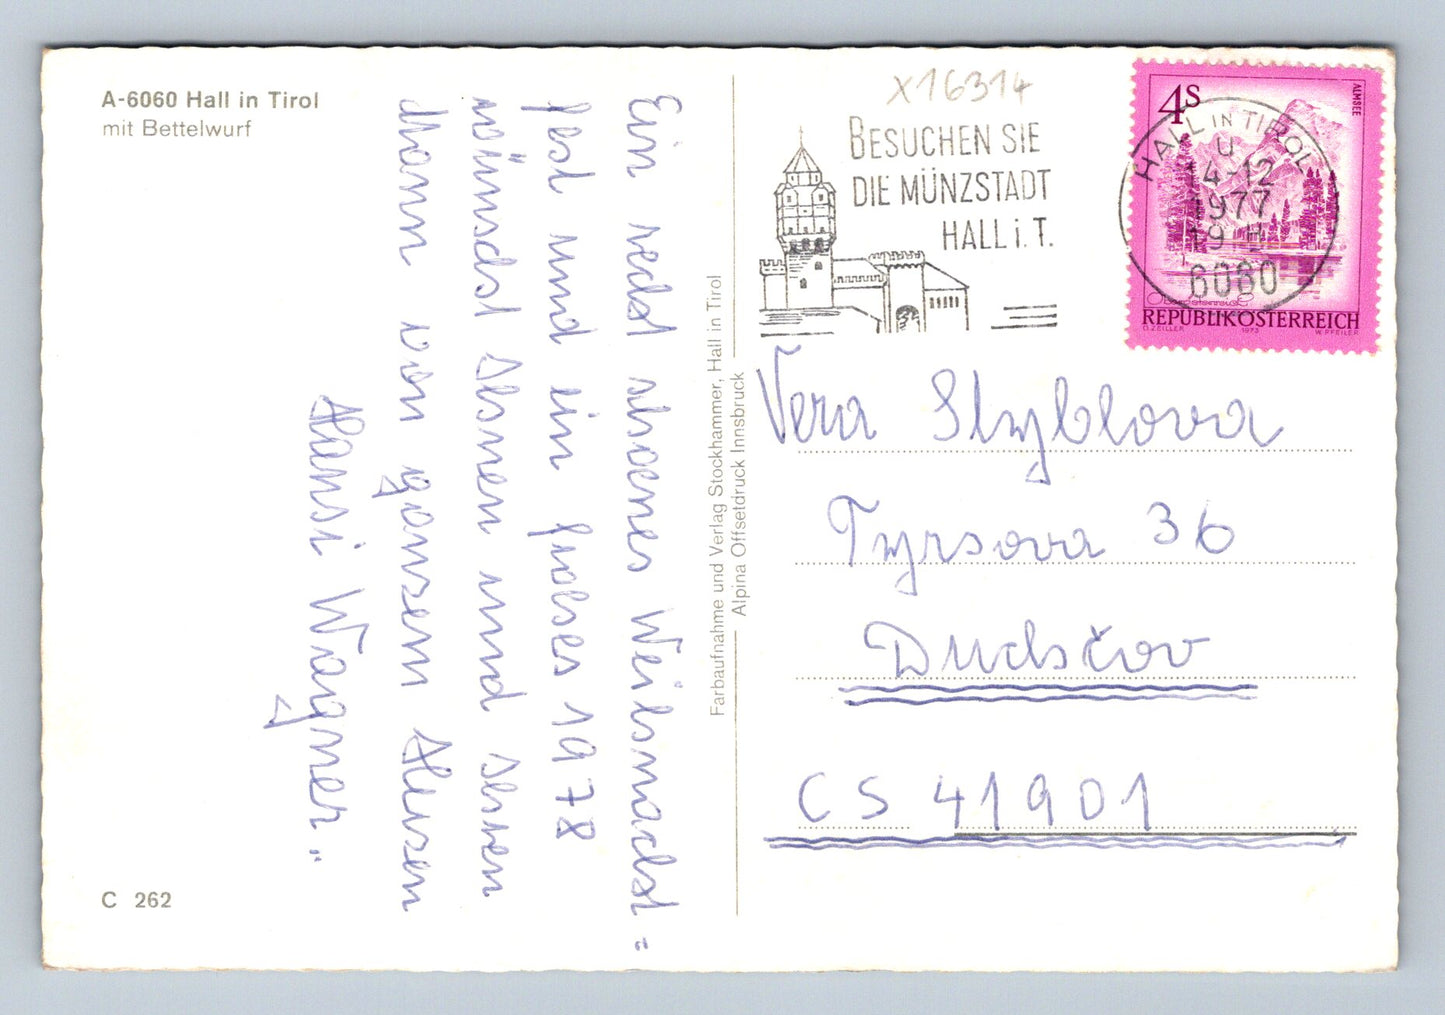 A-6060 Hall in Tirol
mit Bettelwurf
Ein recht schoenes Weihnacht=
fest und ein frohes 1978
wünscht Ihnen und Ihren
Mann von ganzem Herzen
Hansi Wagner.
C 262
Farbaufnahme und Verlag Stockhammer, Hall in Tirol
Alpina Offsetdruck Innsbruck
X16314
BESUCHEN SIE
DIE MÜNZSTADT
HALL i. T.
HALL IN TIROL
U
4-12
1977
19 H
6060
4S
ALMSEE
Oberösterreich
REPUBLIK ÖSTERREICH
O. ZEILLER 1973 W. PFEILER
Vera Styblova
Tyrsova 36
Duchčov
CS 41901